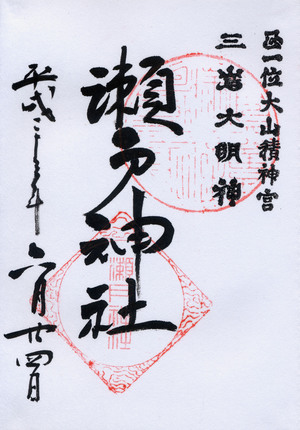 正一位大山積神宮
三嶋大明神
瀬戸神社
平成二十三年六月廿四日